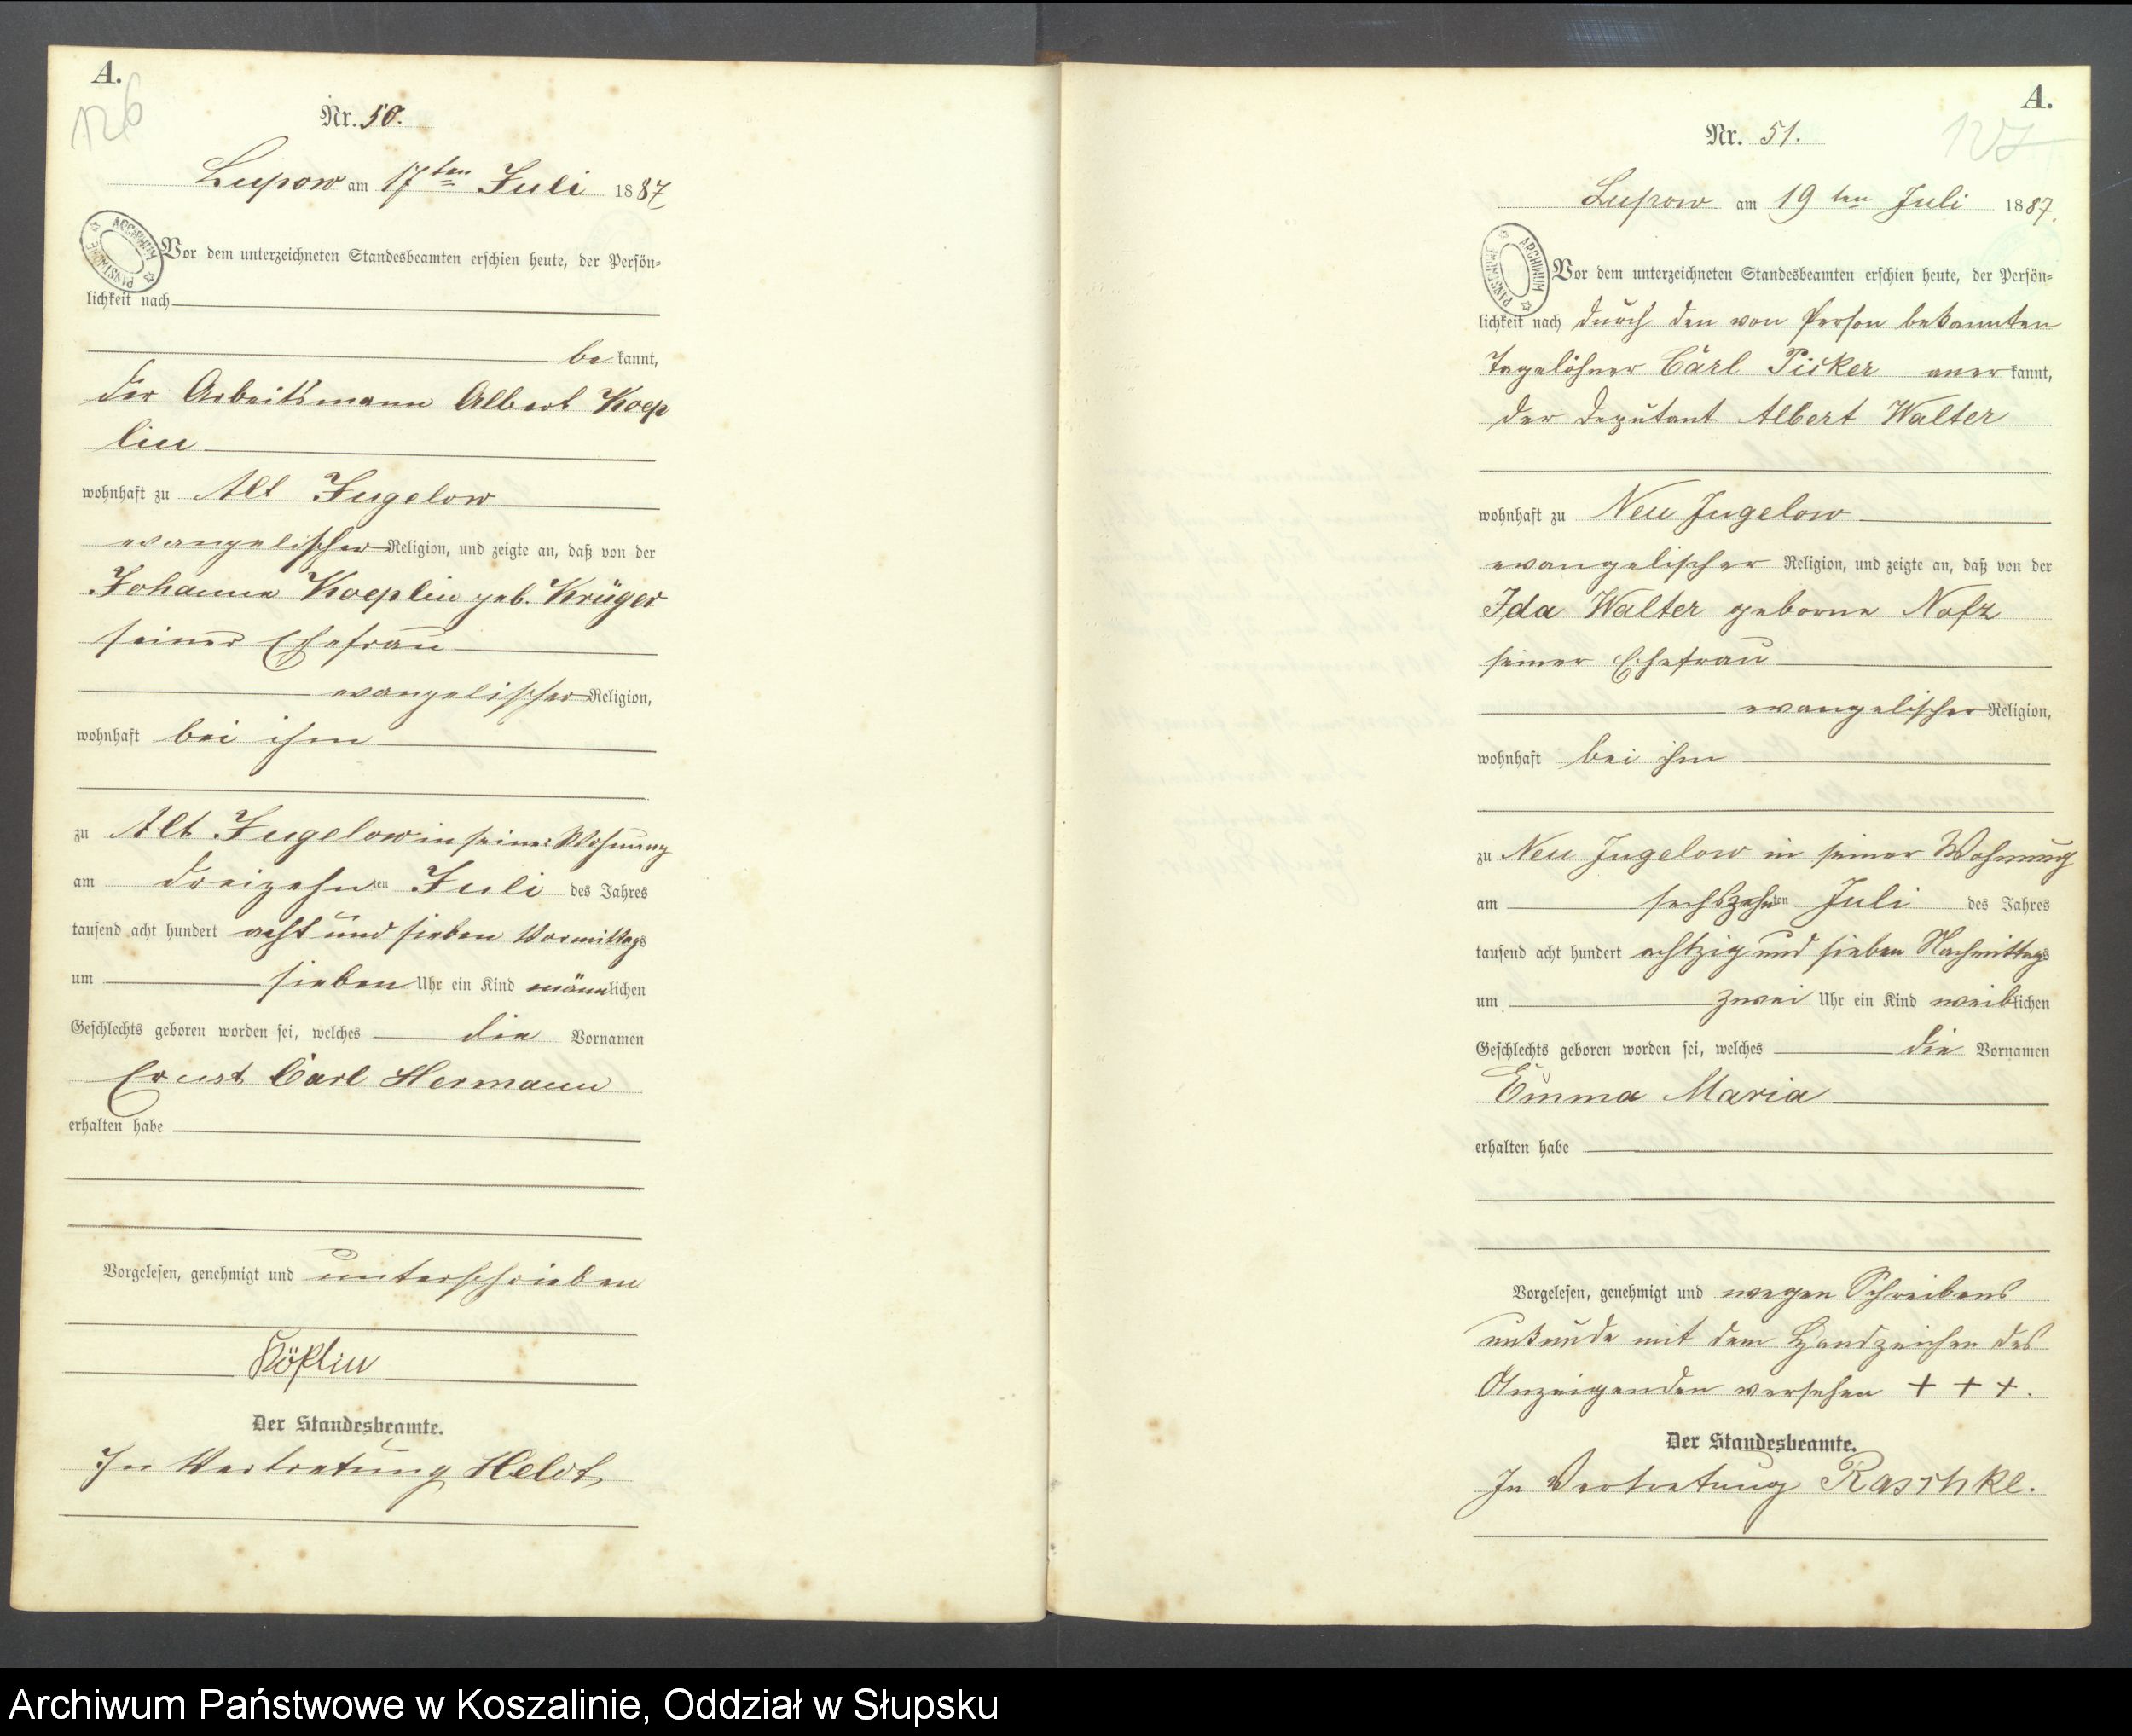 A.
126
Nr. 50.
Lupow am 17ten Juli 1887
ARCHIWUM PAŃSTWOWE
Vor dem unterzeichneten Standesbeamten erschien heute, der Persön-
lichkeit nach
be kannt,
der Arbeitsmann Albert Koep
lin
wohnhaft zu Alt Jugelow
evangelischer Religion, und zeigte an, daß von der
Johanne Koeplin geb. Krüger
seiner Ehefrau
evangelischer Religion,
wohnhaft bei ihm
zu Alt Jugelow in seiner Wohnung
am dreizehnten Juli des Jahres
tausend acht hundert acht und sieben Vormittags
um sieben Uhr ein Kind männlichen
Geschlechts geboren worden sei, welches die Vornamen
Ernst Carl Hermann
erhalten habe
Vorgelesen, genehmigt und unterschrieben
Köplin
Der Standesbeamte.
In Vertretung Heldt
A.
127
Nr. 51.
Lupow am 19ten Juli 1887.
ARCHIWUM PAŃSTWOWE
Vor dem unterzeichneten Standesbeamten erschien heute, der Persön-
lichkeit nach durch den von Person bekannten
Tagelöhner Carl Picker aner kannt,
der Deputant Albert Walter
wohnhaft zu Neu Jugelow
evangelischer Religion, und zeigte an, daß von der
Ida Walter geborne Nofz
seiner Ehefrau
evangelischer Religion,
wohnhaft bei ihm
zu Neu Jugelow in seiner Wohnung
am sechszehnten Juli des Jahres
tausend acht hundert achtzig und sieben Nachmittags
um zwei Uhr ein Kind weiblichen
Geschlechts geboren worden sei, welches die Vornamen
Emma Maria
erhalten habe
Vorgelesen, genehmigt und wegen Schreibens
unkunde mit dem Handzeichen des
Anzeigenden versehen + + +.
Der Standesbeamte.
In Vertretung Raschke.
Archiwum Państwowe w Koszalinie, Oddział w Słupsku